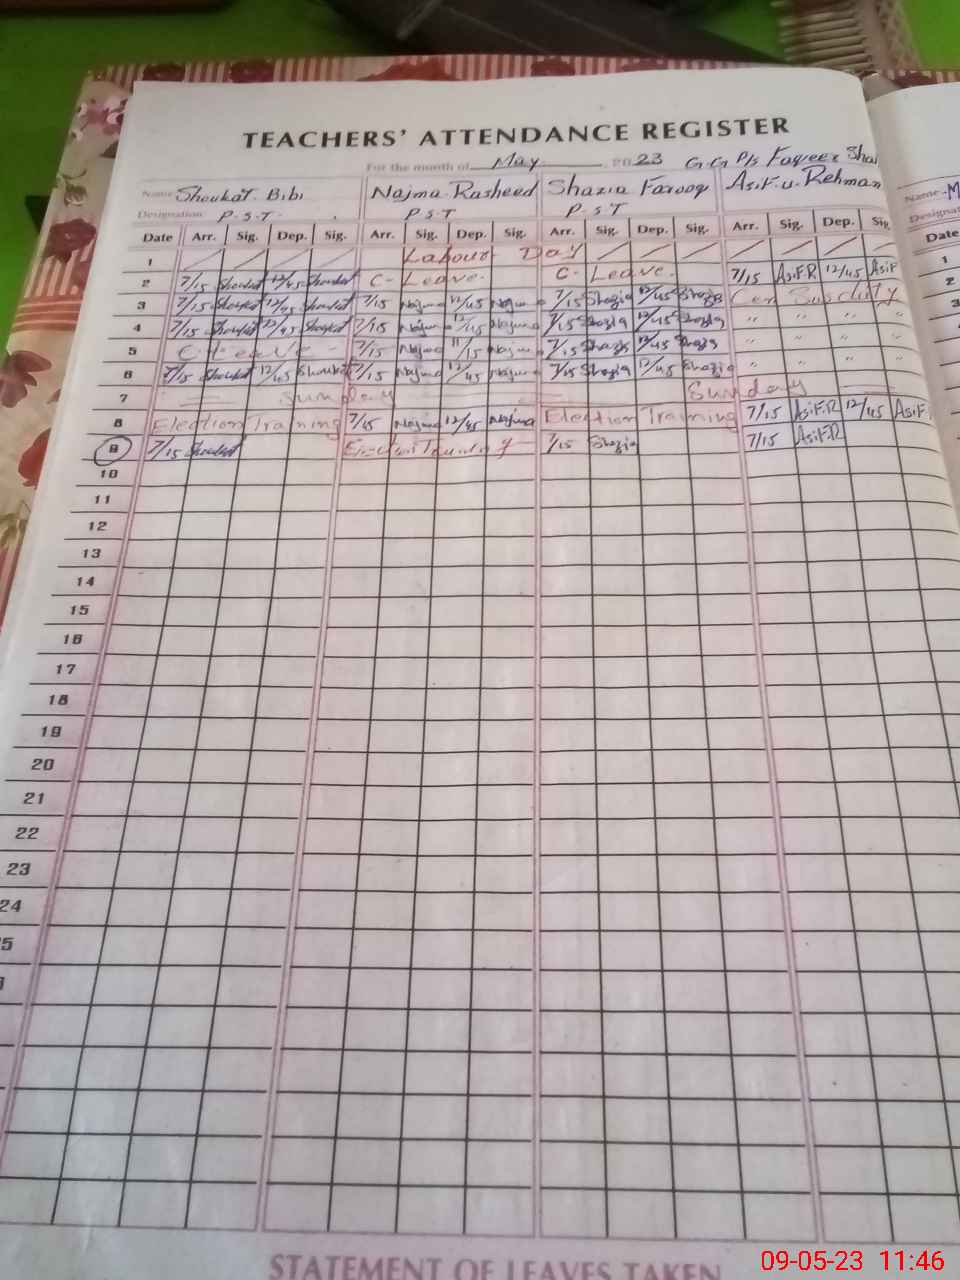 TEACHERS' ATTENDANCE REGISTER
For the month of May 2023 G.G P/s Faqeer Sha
Name Shoukat Bibi Najma Rasheed Shazia Farooq Asif.u.Rehman Name M
Designation P.S.T P.S.T P.S.T Designat
Date Arr. Sig. Dep. Sig. Arr. Sig. Dep. Sig. Arr. Sig. Dep. Sig. Arr. Sig. Dep. Sig Date
1 Labour Day 1
2 7/15 Shoukat 12/45 Shoukat C- Leave. C- Leave. 7/15 Asif.R 12/45 Asif 2
3 7/15 Shoukat 12/45 Shoukat 7/15 Najma 12/45 Najma 7/15 Shazia 12/45 Shazia duty 3
4 7/15 Shoukat 12/45 Shoukat 7/15 Najma 12/45 Najma 7/15 Shazia 12/45 Shazia " " " " 4
5 C-Leave - 7/15 Najma 11/15 Najma 7/15 Shazia 12/45 Shazia " " " " 5
6 7/15 Shoukat 12/45 Shoukat 7/15 Najma 12/45 Najma 7/15 Shazia 12/45 Shazia " " " " 6
7 Sunday Sunday 7
8 Election Training 7/15 Najma 12/45 Najma Election Training 7/15 Asif.R 12/45 Asif. 8
9 7/15 Shoukat Election Training 7/15 Shazia 7/15 Asif.R 9
10
11
12
13
14
15
16
17
18
19
20
21
22
23
24
5
STATEMENT OF LEAVES TAKEN
09-05-23 11:46